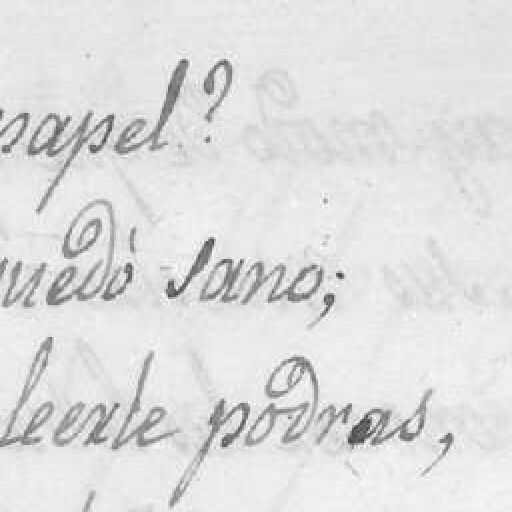 papel?
quedó sano;
leerle podrás,